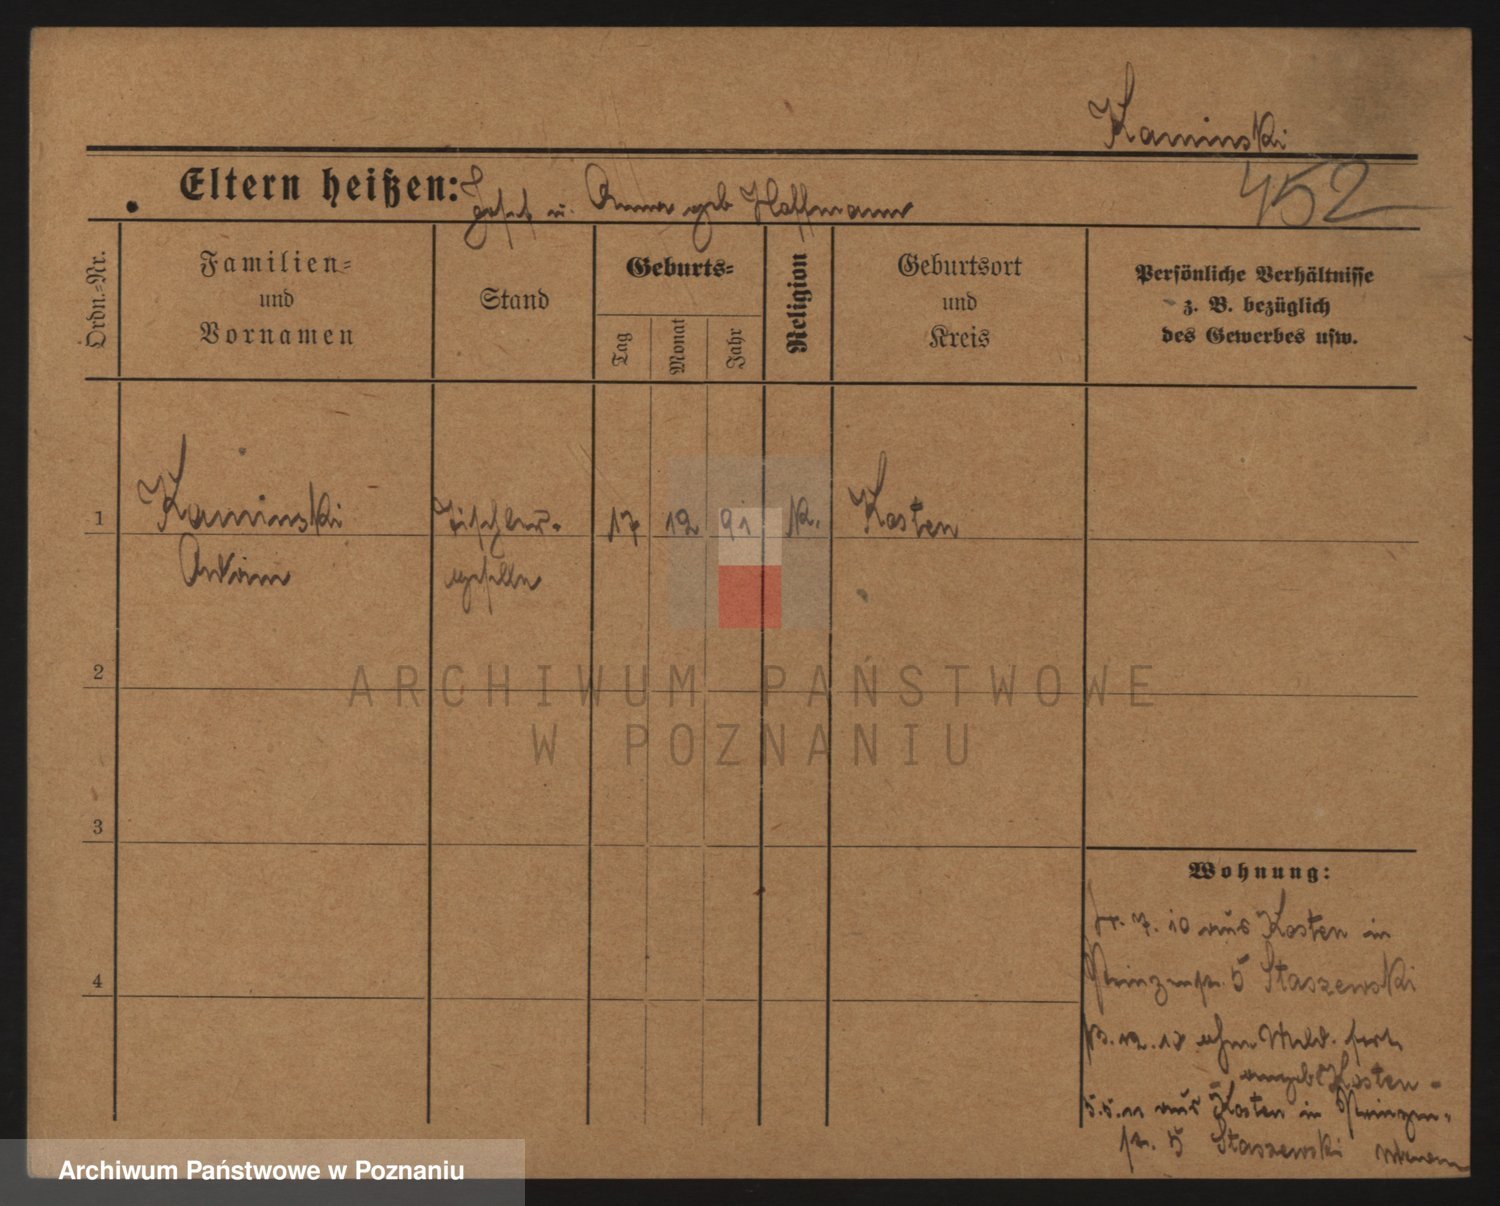 Kaminski
452
Eltern heißen: Josef u. Anna geb Hoffmann
Ordn.-Nr.
Familien-
und
Vornamen
Stand
Geburts-
Tag
Monat
Jahr
Religion
Geburtsort
und
Kreis
Persönliche Verhältnisse
z. B. bezüglich
des Gewerbes usw.
1
Kaminski
Anton
Tischler-
geselle
17
12
91
K.
Kosten
2
ARCHIWUM PAŃSTWOWE
W POZNANIU
3
4
Wohnung:
7. 10 aus Kosten in
Prinzenstr. 5 Staszewski
12. 10 ohne Meld. fort
angeb Kosten -
5.5.11 aus Kosten in Prinzen-
str. 5 Staszewski
Archiwum Państwowe w Poznaniu